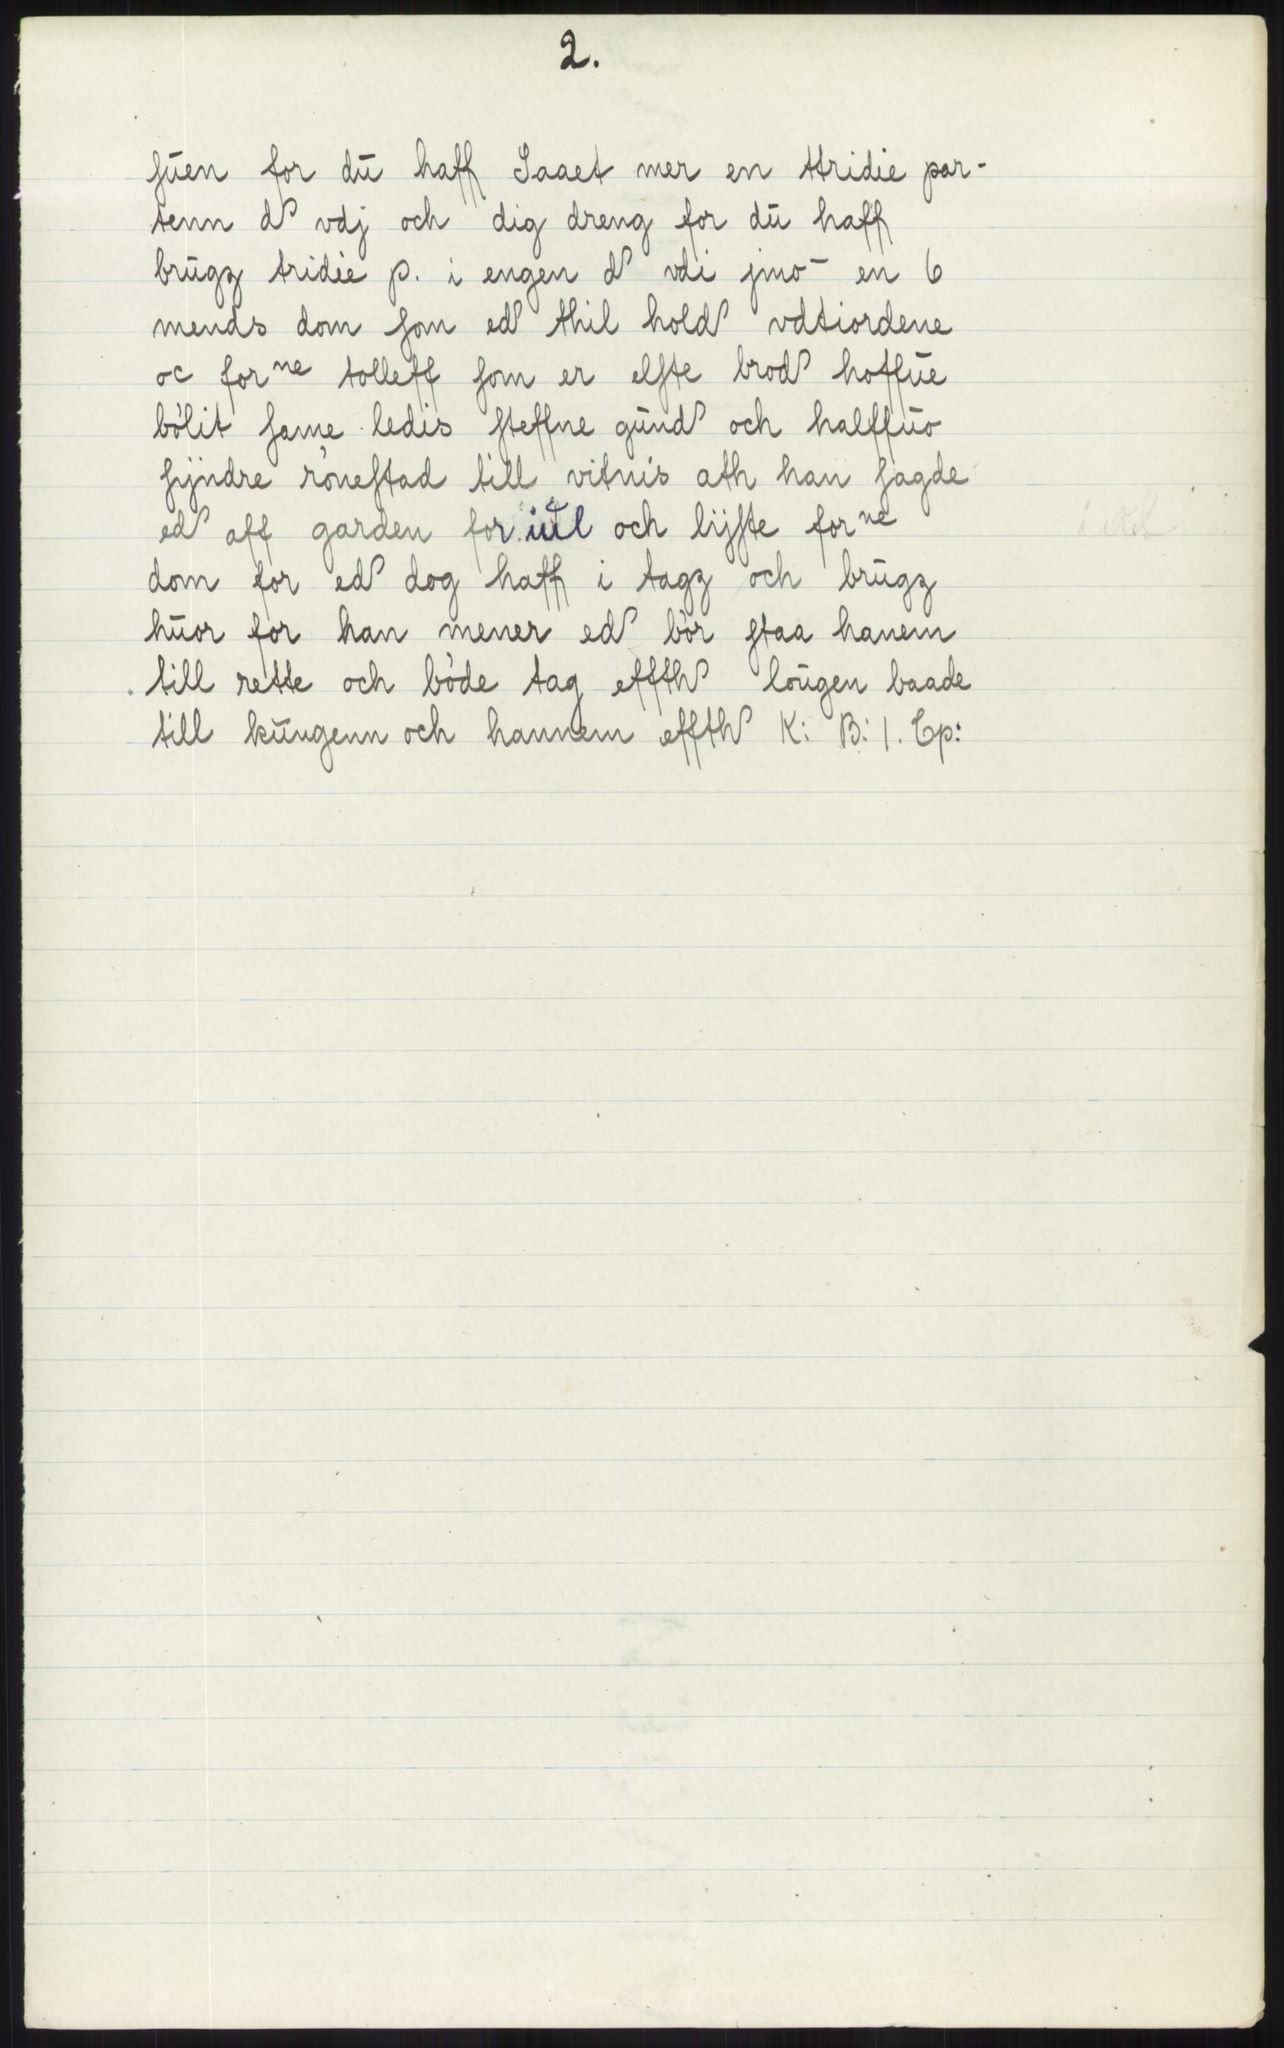 2.
suen for du haff Saaet mer en ttridie par-
tenn d vdj och dig dreng for du haff
brugz tridie p. i engen d vdi jmo- en 6
mends dom som ed thil hold vdtiordene
oc forne tolleff som er elste brod hoffue
bólit same ledis steffne gund och halffuo
syndre rónestad till vitnis ath han sagde
ed aff garden for iul och lijste forne
dom for ed dog haff i tagz och brugz
huor for han mener ed bór staa hanem
till rette och bóde tag effth lougen baade
till kungenn och hannem effth K: B: 1. Cp: